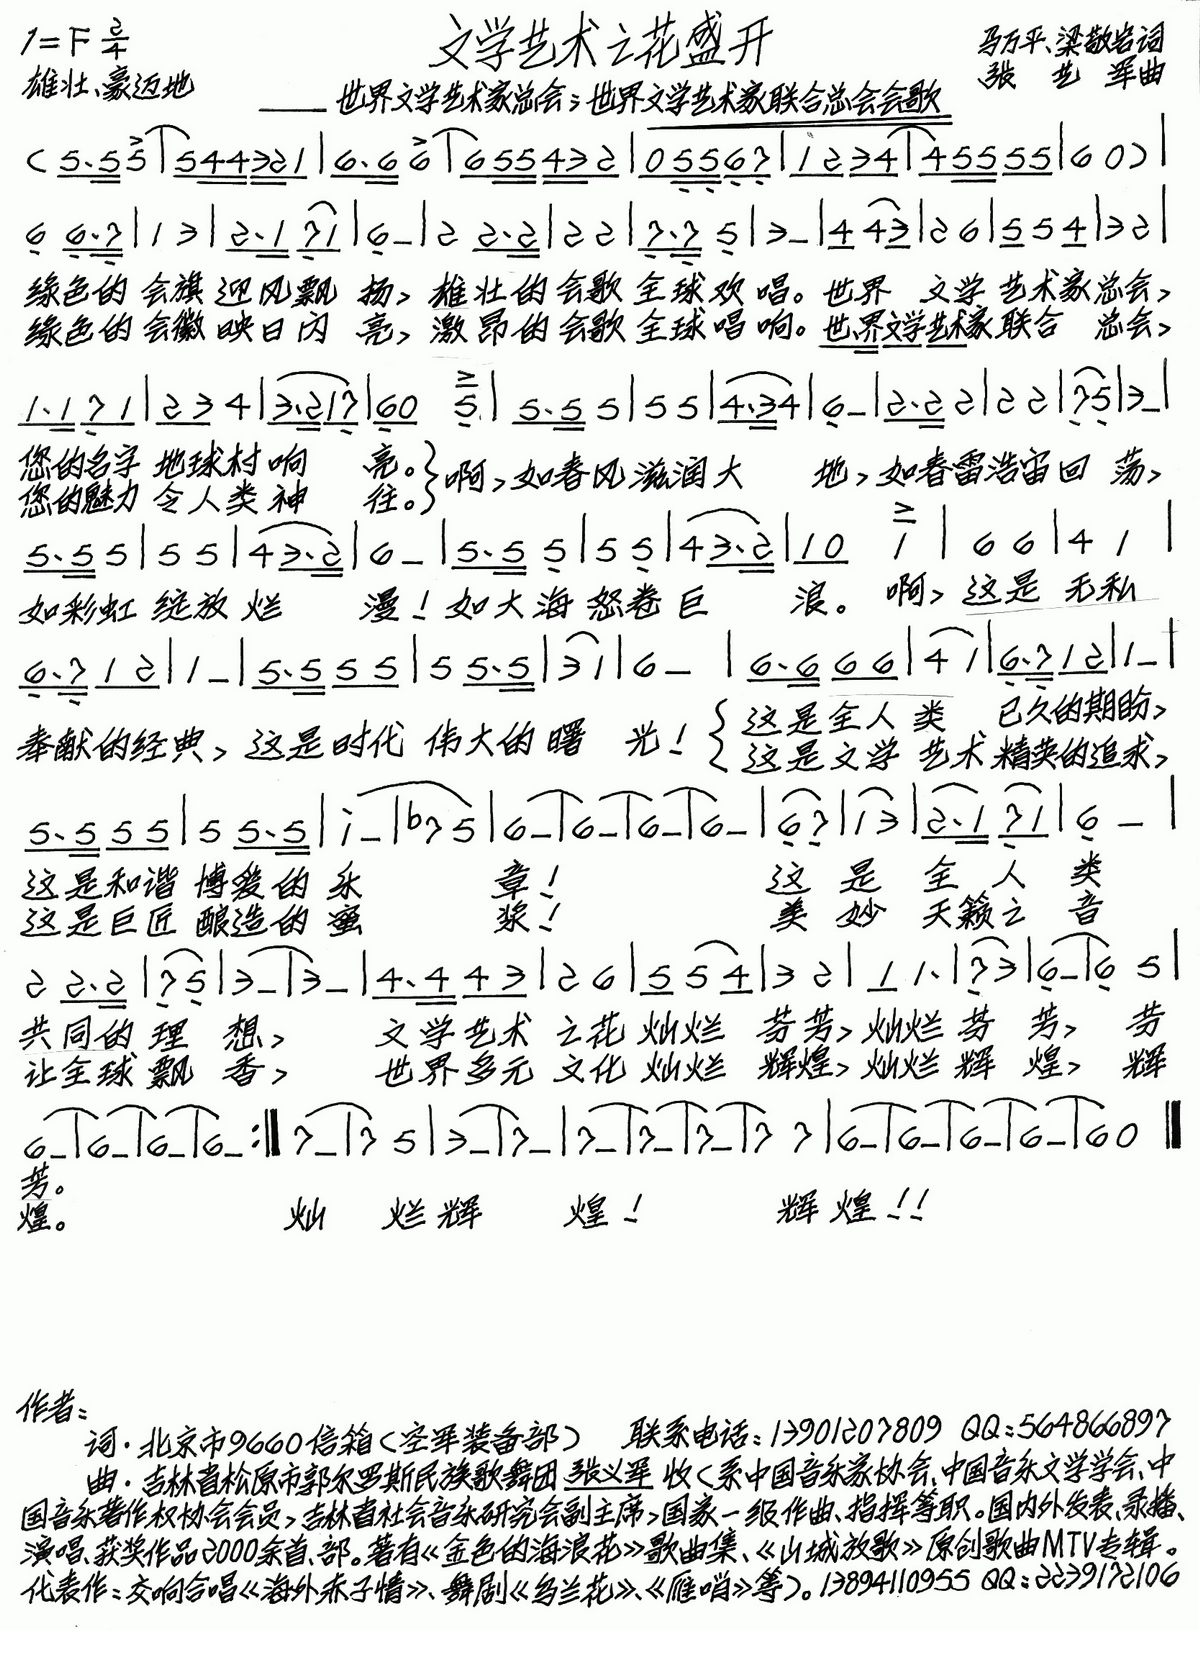 文学艺术之花盛开
1=F 2/4
马万平、梁敬岩词
雄壮、豪迈地
张艺军曲
——世界文学艺术家总会;世界文学艺术家联合总会会歌
(5·5 5|5 4 4 3 2 1|6·6 6|6 5 5 4 3 2|0 5 5 6 7|1 2 3 4|4 5 5 5 5|6 0)|
6 6·7|1 3|2·1 7 1|6 –|2 2·2|2 2|7·7 5|3 –|4 4 3|2 6|5 5 4|3 2|
绿色的会旗迎风飘扬,雄壮的会歌全球欢唱。世界文学艺术家总会,
绿色的会徽映日闪亮,激昂的会歌全球唱响。世界文学艺术家联合总会,
1·1 7 1|2 3 4|3·2 1 7|6 0 5|5·5 5|5 5|4·3 4|6 –|2·2 2|2 2|7 5|3 –|
您的名字地球村响亮。}啊,如春风滋润大地,如春雷浩宙回荡,
您的魅力令人类神往。
5·5 5|5 5|4 3·2|6 –|5·5 5|5 5|4 3·2|1 0 1|6 6|4 1|
如彩虹绽放烂漫!如大海怒卷巨浪。啊,这是无私
6·7 1 2|1 –|5·5 5 5|5 5·5|3 1|6 –|6·6 6 6|4 1|6·7 1 2|1 –|
奉献的经典,这是时代伟大的曙光!{这是全人类已久的期盼,
这是文学艺术精英的追求,
5·5 5 5|5 5·5|i –|b7 5|6 –|6 –|6 –|6 –|6 7|1 3|2·1 7 1|6 –|
这是和谐博爱的乐章!这是全人类
这是巨匠酿造的蜜浆!美妙天籁之音
2 2·2|7 5|3 –|3 –|4·4 4 3|2 6|5 5 4|3 2|1 1·|7 3|6 –|6 5|
共同的理想,文学艺术之花灿烂芬芳,灿烂芬芳,芳
让全球飘香,世界多元文化灿烂辉煌,灿烂辉煌,辉
6 –|6 –|6 –|6 –:‖7 –|7 5|3 –|7 –|7 –|7 –|7 –|7 7|6 –|6 –|6 –|6 –|6 0‖
芳。
煌。灿烂辉煌!辉煌!!
作者:
词·北京市9660信箱(空军装备部) 联系电话:13901207809 QQ:564866897
曲·吉林省松原市郭尔罗斯民族歌舞团 张义军 收(系中国音乐家协会、中国音乐文学学会、中
国音乐著作权协会会员,吉林省社会音乐研究会副主席,国家一级作曲、指挥等职。国内外发表、录播、
演唱、获奖作品2000余首、部。著有《金色的海浪花》歌曲集、《山城放歌》原创歌曲MTV专辑。
代表作:交响合唱《海外赤子情》、舞剧《乌兰花》、《雁哨》等)。13894110955 QQ:2239172106